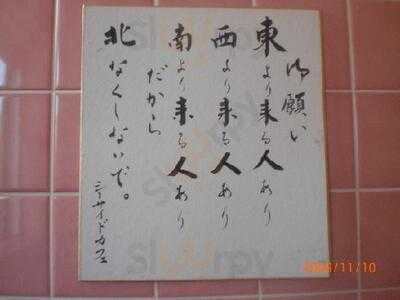 お願い
東より来る人あり
西より来る人あり
南より来る人あり
だから
北なくしないで。
シーサイドカフェ
2008/11/10